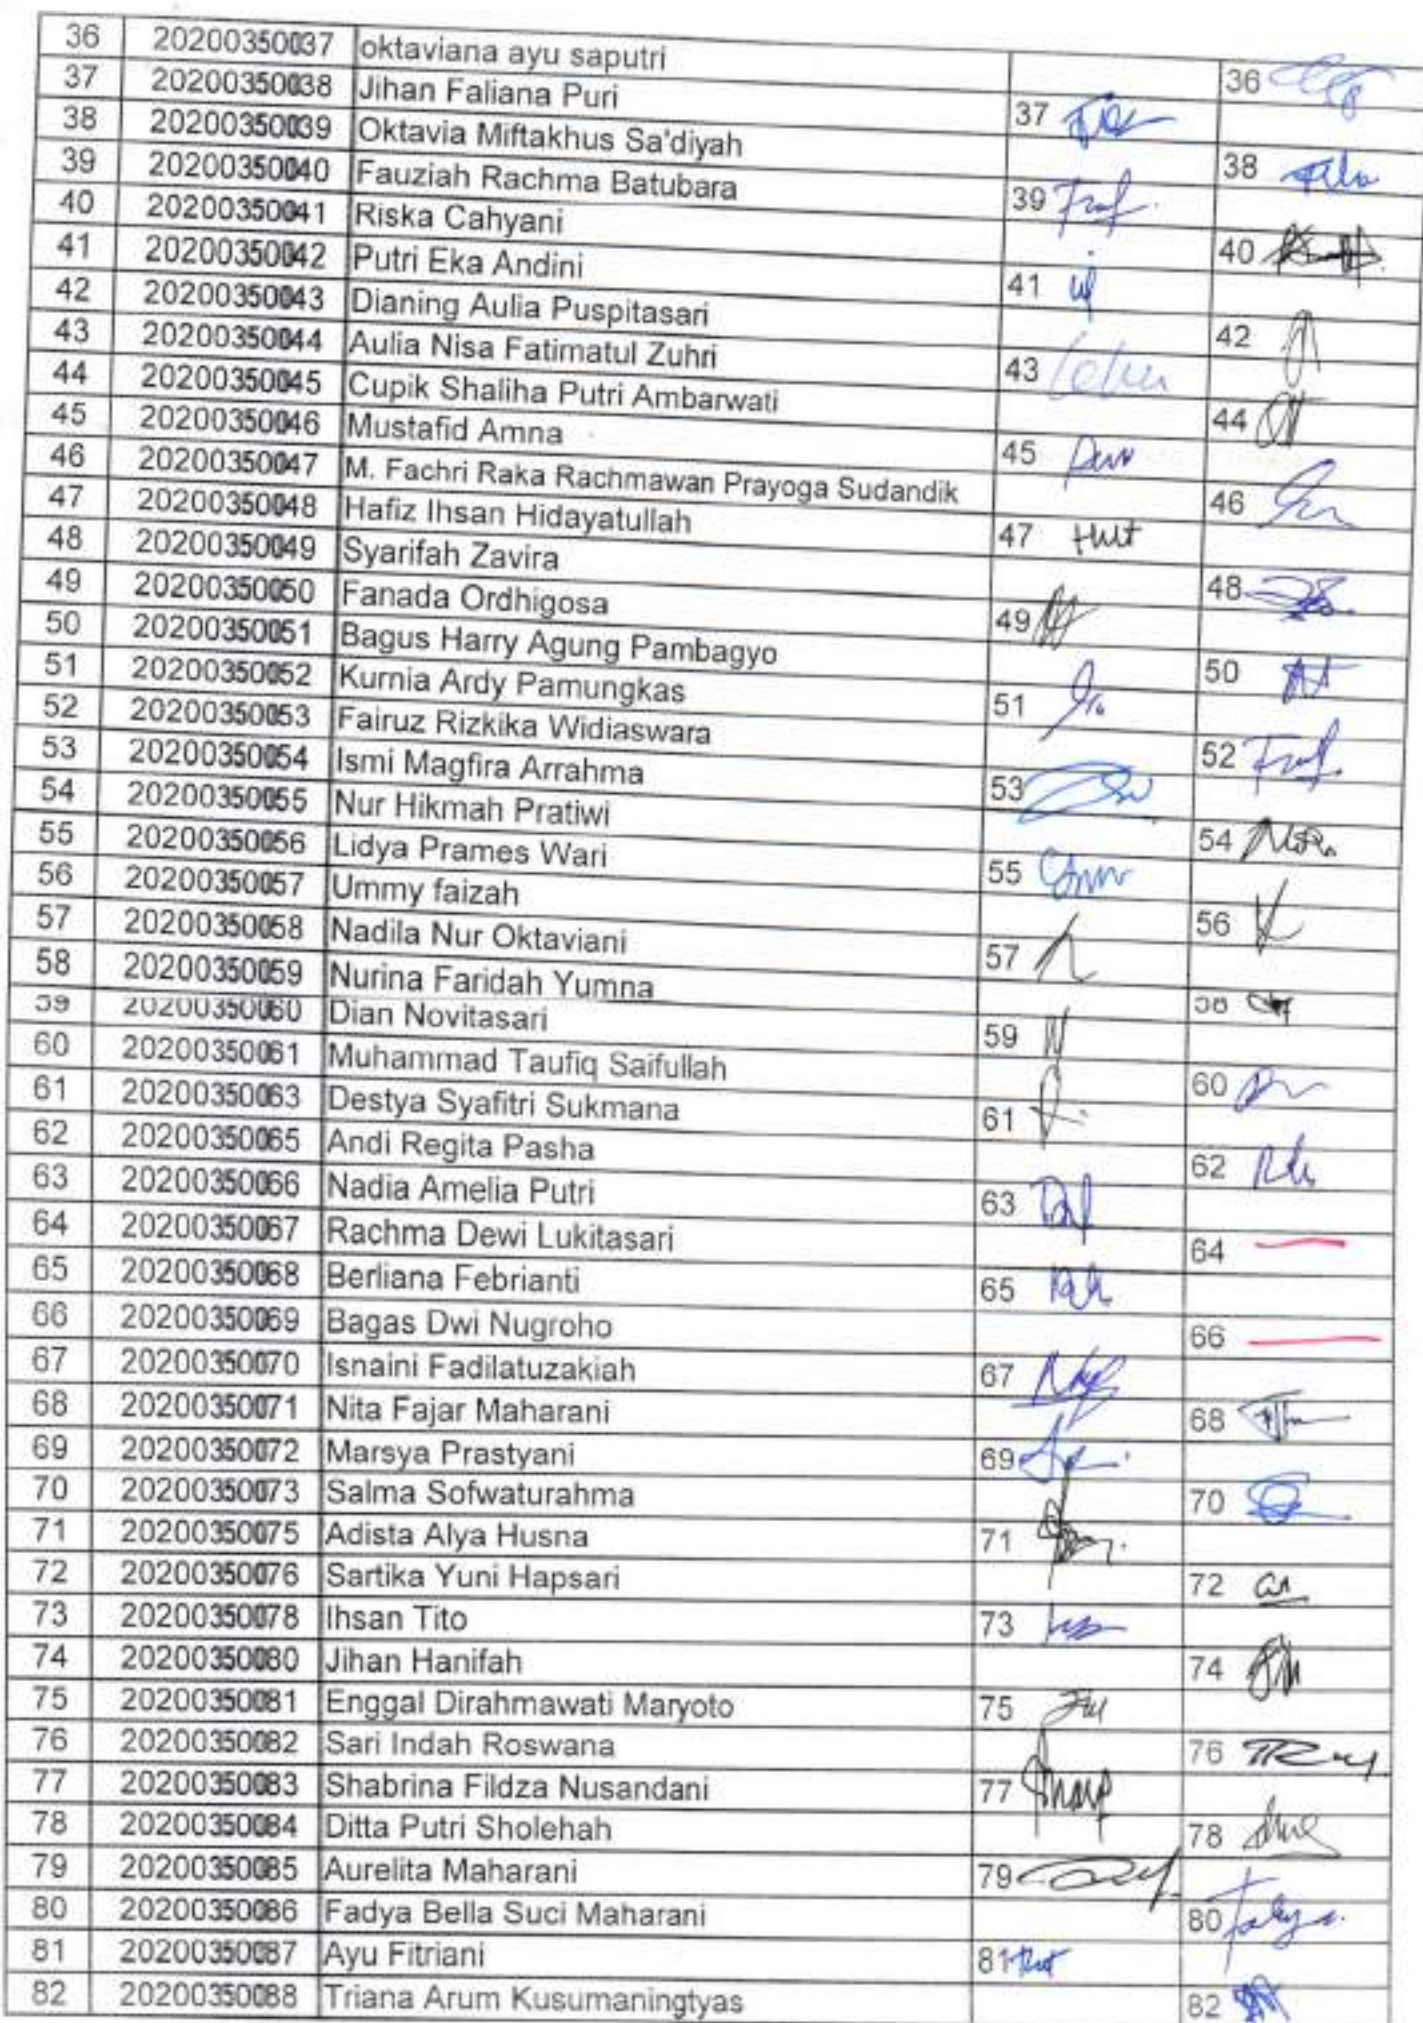 36 20200350037 oktaviana ayu saputri 36
37 20200350038 Jihan Faliana Puri 37
38 20200350039 Oktavia Miftakhus Sa'diyah 38
39 20200350040 Fauziah Rachma Batubara 39
40 20200350041 Riska Cahyani 40
41 20200350042 Putri Eka Andini 41
42 20200350043 Dianing Aulia Puspitasari 42
43 20200350044 Aulia Nisa Fatimatul Zuhri 43
44 20200350045 Cupik Shaliha Putri Ambarwati 44
45 20200350046 Mustafid Amna 45
46 20200350047 M. Fachri Raka Rachmawan Prayoga Sudandik 46
47 20200350048 Hafiz Ihsan Hidayatullah 47
48 20200350049 Syarifah Zavira 48
49 20200350050 Fanada Ordhigosa 49
50 20200350051 Bagus Harry Agung Pambagyo 50
51 20200350052 Kurnia Ardy Pamungkas 51
52 20200350053 Fairuz Rizkika Widiaswara 52
53 20200350054 Ismi Magfira Arrahma 53
54 20200350055 Nur Hikmah Pratiwi 54
55 20200350056 Lidya Prames Wari 55
56 20200350057 Ummy faizah 56
57 20200350058 Nadila Nur Oktaviani 57
58 20200350059 Nurina Faridah Yumna 58
59 20200350060 Dian Novitasari 59
60 20200350061 Muhammad Taufiq Saifullah 60
61 20200350063 Destya Syafitri Sukmana 61
62 20200350065 Andi Regita Pasha 62
63 20200350066 Nadia Amelia Putri 63
64 20200350067 Rachma Dewi Lukitasari 64
65 20200350068 Berliana Febrianti 65
66 20200350069 Bagas Dwi Nugroho 66
67 20200350070 Isnaini Fadilatuzakiah 67
68 20200350071 Nita Fajar Maharani 68
69 20200350072 Marsya Prastyani 69
70 20200350073 Salma Sofwaturahma 70
71 20200350075 Adista Alya Husna 71
72 20200350076 Sartika Yuni Hapsari 72
73 20200350078 Ihsan Tito 73
74 20200350080 Jihan Hanifah 74
75 20200350081 Enggal Dirahmawati Maryoto 75
76 20200350082 Sari Indah Roswana 76
77 20200350083 Shabrina Fildza Nusandani 77
78 20200350084 Ditta Putri Sholehah 78
79 20200350085 Aurelita Maharani 79
80 20200350086 Fadya Bella Suci Maharani 80
81 20200350087 Ayu Fitriani 81
82 20200350088 Triana Arum Kusumaningtyas 82